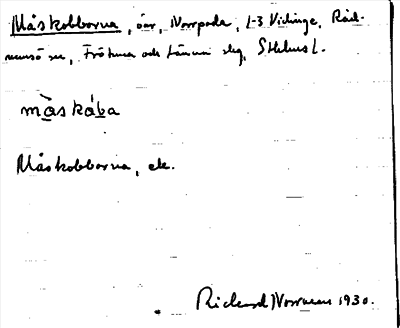 Måskobborna, öar, Norrpada, 1-3 Vidinge, Råd-
mansö sn, Frötuna och Länna slg, Sthlms l.
màskába
Måskobborna, ek.
Rickard 1930.